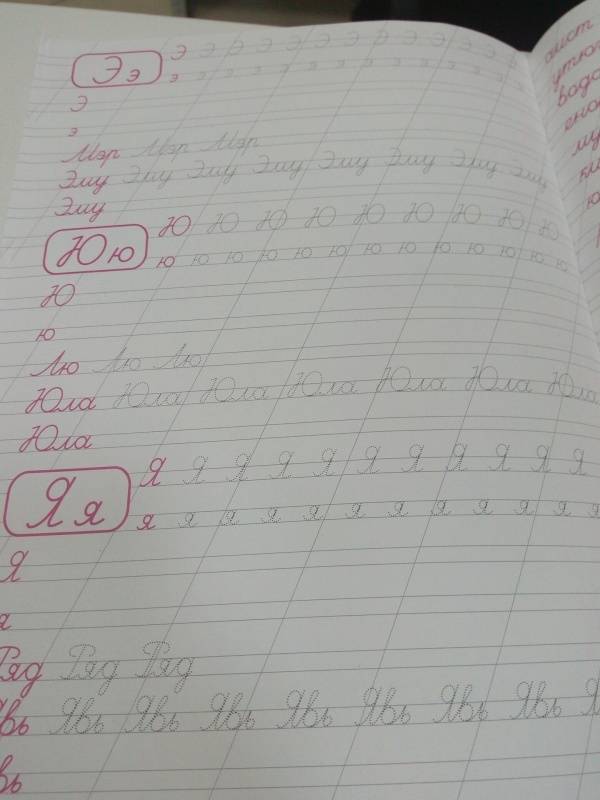 Э э
Э Э Э Э Э Э Э Э Э Э Э Э Э
э э э э э э э э э э э э э
Э
э
Мэр Мэр Мэр
Эму Эму Эму Эму Эму Эму Эму Эму
Эму
Ю ю
Ю Ю Ю Ю Ю Ю Ю Ю Ю
ю ю ю ю ю ю ю ю ю ю ю ю ю
Ю
ю
Лю Лю Лю
Юла Юла Юла Юла Юла Юла Юла
Юла
Я я
Я Я Я Я Я Я Я Я Я Я Я
я я я я я я я я я я я я
Я
я
Ряд Ряд Ряд
Явь Явь Явь Явь Явь Явь Явь Явь
аист